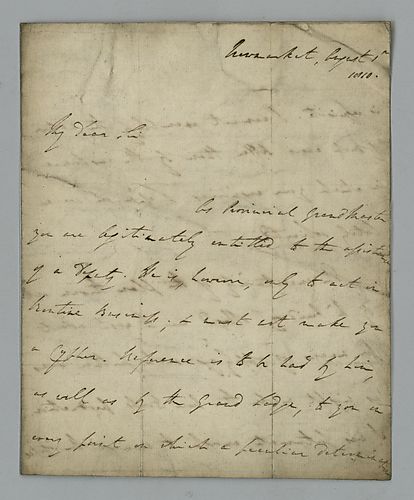 Newmarket, August 1st
1810.
My Dear Sir
As Provincial Grand Master
you are legitimately entitled to the assistance
of a Deputy. He is, however, only to act in
Routine Business; & must not make you
a Cypher. Reference is to be had by him,
as well as by the Grand Lodge, to you on
every point on which a peculiar determination